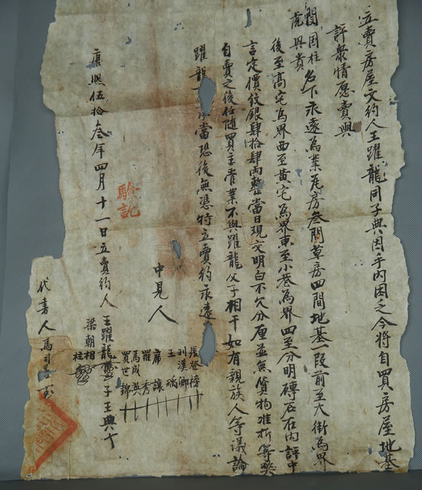 立賣房屋文約人王躍龍同子典因手內困乏今將自買房屋地基
評衆情愿賣與
閻國柱名下永遠為業瓦房叁間草房四間地基一段前至大街為界
虎興貴
後至高宅為界西至黃宅為界東至小巷為界四至分明磚瓦石內評中
言定價紋銀肆拾肆两整當日現交明白不欠分厘並無貨物准折等獘
自賣之後任隨買主管業不與躍龍父子相干如有親族人等議論
躍龍 當恐後無憑特立賣約永遠
康熙伍拾叁年四月十一日立賣約人王躍龍 子王典十
驗訖
中見人
王瑞
羅秀
馬成興
賈世錦
梁朝相
柱
代書人馬